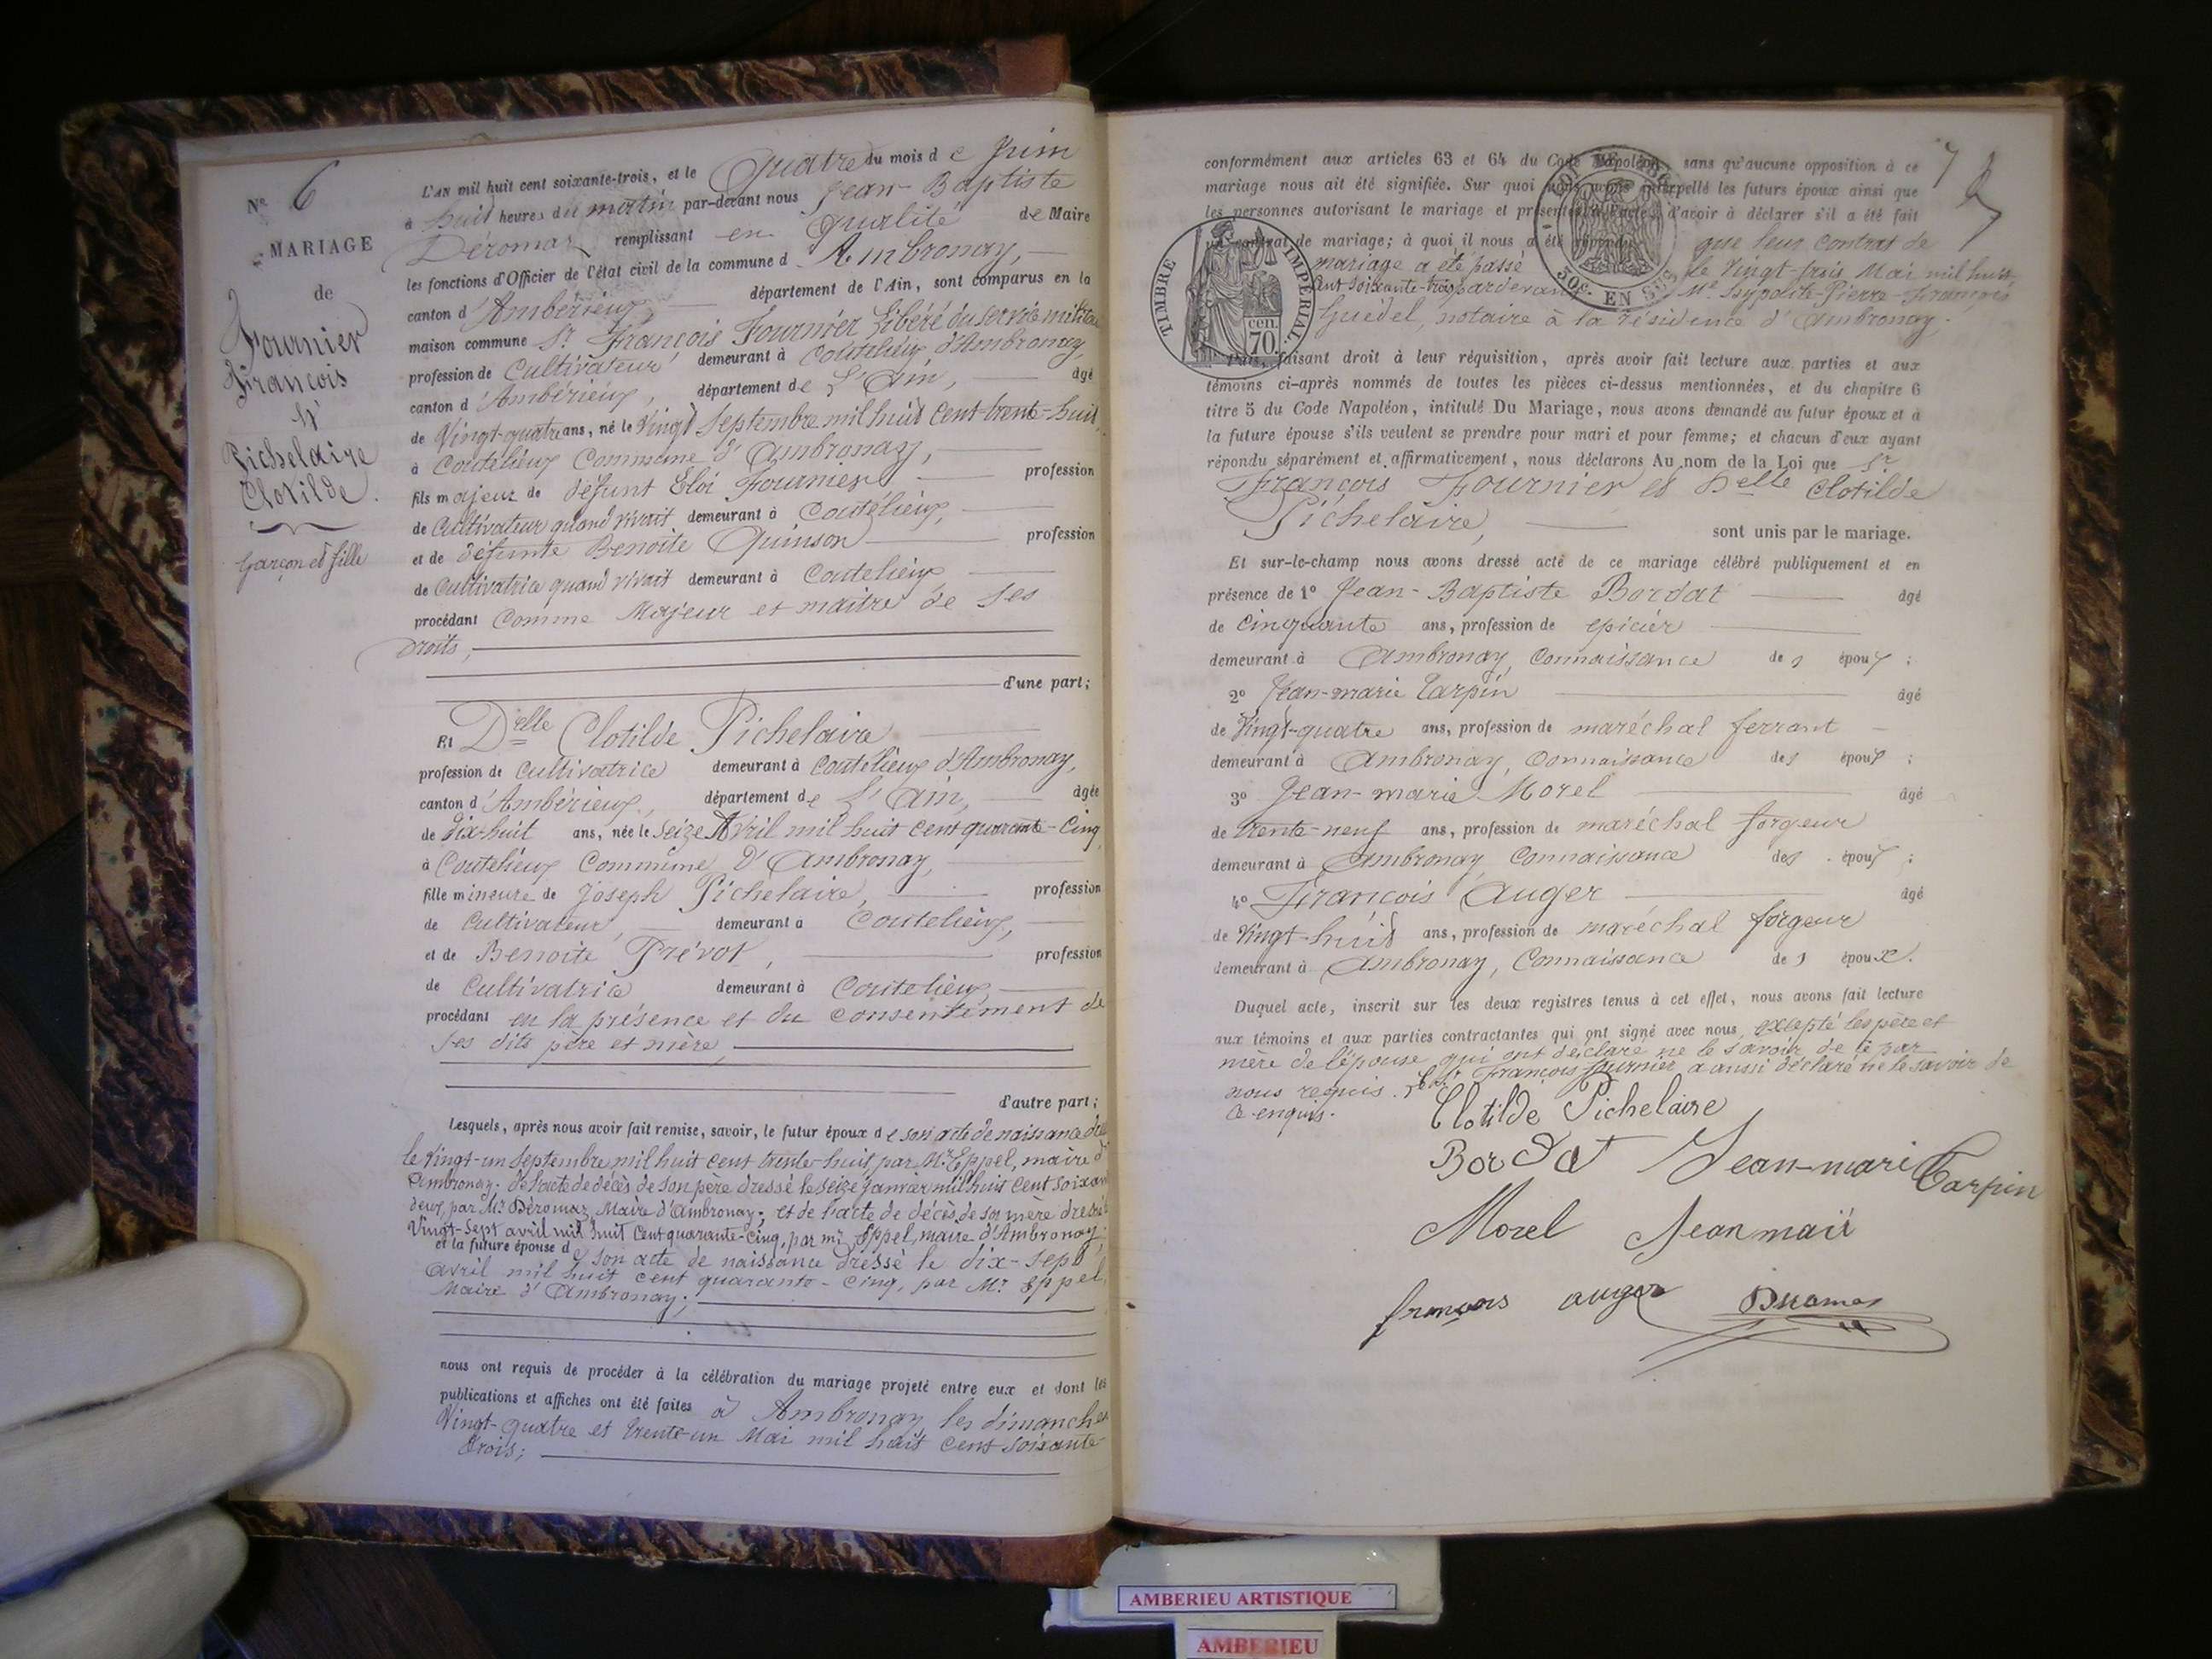 Nº 6
MARIAGE
de
Fournier
François
&
Pichelaire
Clotilde.
Garçon et fille
L'AN mil huit cent soixante-trois, et le Quatre du mois de Juin
à huit heures du matin par-devant nous Jean-Baptiste
Déromas remplissant en qualité de Maire
les fonctions d'Officier de l'état civil de la commune d'Ambronay,
canton d'Ambérieux département de l'Ain, sont comparus en la
maison commune Sr François Fournier Libéré du service militaire
profession de Cultivateur demeurant à Coutelieux d'Ambronay,
canton d'Ambérieux, département de L'Ain, âgé
de Vingt-quatre ans, né le Vingt Septembre mil huit cent trente-huit,
à Coutelieux Commune d'Ambronay,
fils majeur de défunt Eloi Fournier profession
de Cultivateur quand vivait demeurant à Coutélieux,
et de défunte Benoite Quinson profession
de Cultivatrice quand vivait demeurant à Coutelieux
procédant Comme Majeur et maître de ses
droits,
d'une part;
Et Delle Clotilde Pichelaire
profession de Cultivatrice demeurant à Coutélieux d'Ambronay,
canton d'Ambérieux, département de L'Ain, âgée
de Dix-huit ans, née le Seize Avril mil huit cent quarante-Cinq
à Coutelieux Commune D'Ambronay,
fille mineure de Joseph Pichelaire, profession
de Cultivateur, demeurant à Coutelieux,
et de Benoite Prévot, profession
de Cultivatrice demeurant à Coutelieux
procédant en la présence et du consentement de
ses dits père et mère,
d'autre part;
Lesquels, après nous avoir fait remise, savoir, le futur époux de son acte de naissance
le Vingt-un Septembre mil huit cent trente-huit, par Mr. Eppel, maire d'
Ambronay. de l'acte de décès de son père dressé le seize janvier mil huit cent soixante
deux, par Mr Déromas, Maire d'Ambronay; et de l'acte de décès de sa mère dressé
Vingt-Sept avril mil huit Cent quarante-Cinq, par mr. Eppel, maire d'Ambronay.
et la future épouse de son acte de naissance dressé le dix-sept
avril mil huit cent quarante-cinq, par Mr. Eppel,
Maire d'Ambronay;
nous ont requis de procéder à la célébration du mariage projeté entre eux et dont les
publications et affiches ont été faites à Ambronay les dimanches
Vingt-quatre et trente-un Mai mil huit cent soixante-
trois;
7
conformément aux articles 63 et 64 du Code Napoléon, sans qu'aucune opposition à ce
mariage nous ait été signifiée. Sur quoi nous avons interpellé les futurs époux ainsi que
les personnes autorisant le mariage et présentes à l'acte, d'avoir à déclarer s'il a été fait
un contrat de mariage; à quoi il nous a été répondu que leur Contrat de
mariage a été passé le Vingt-trois Mai mil huit
Cent soixante-trois pardevant Me Hypolite-Pierre-François
Guédel, notaire à la résidence d'Ambronay.
TIMBRE IMPÉRIAL
70 cen.
50c. EN SUS
Puis, faisant droit à leur réquisition, après avoir fait lecture aux parties et aux
témoins ci-après nommés de toutes les pièces ci-dessus mentionnées, et du chapitre 6
titre 5 du Code Napoléon, intitulé Du Mariage, nous avons demandé au futur époux et à
la future épouse s'ils veulent se prendre pour mari et pour femme; et chacun d'eux ayant
répondu séparément et affirmativement, nous déclarons Au nom de la Loi que Sr
François Fournier et Delle Clotilde
Pichelaire, sont unis par le mariage.
Et sur-le-champ nous avons dressé acte de ce mariage célébré publiquement et en
présence de 1º Jean-Baptiste Bordat âgé
de Cinquante ans, profession de épicier
demeurant à Ambronay, Connaissance des époux;
2º Jean-marie Carpin âgé
de Vingt-quatre ans, profession de maréchal ferrant
demeurant à Ambronay, Connaissance des époux;
3º Jean-marie Morel âgé
de trente-neuf ans, profession de maréchal forgeur
demeurant à Ambronay, Connaissance des époux;
4º François Auger âgé
de Vingt-huit ans, profession de maréchal forgeur
demeurant à Ambronay, Connaissance des époux.
Duquel acte, inscrit sur les deux registres tenus à cet effet, nous avons fait lecture
aux témoins et aux parties contractantes qui ont signé avec nous, excepté les père et
mère de l'épouse qui ont déclaré ne le savoir, de ce par
nous requis. Et Sr François Fournier a aussi déclaré ne le savoir de
ce enquis.
Clotilde Pichelaire
Bordat Jean-marie Carpin
Morel Jean marie
françois auger Déromas
AMBERIEU ARTISTIQUE
AMBERIEU